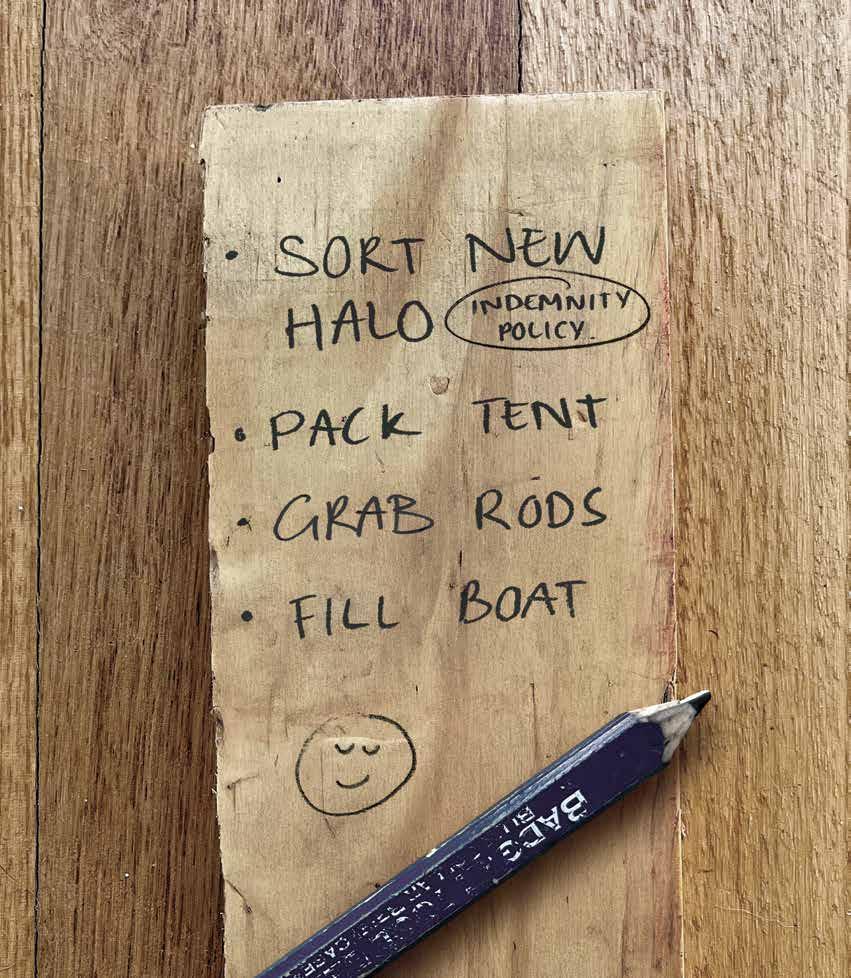 • SORT NEW
HALO INDEMNITY
POLICY.
• PACK TENT
• GRAB RODS
• FILL BOAT